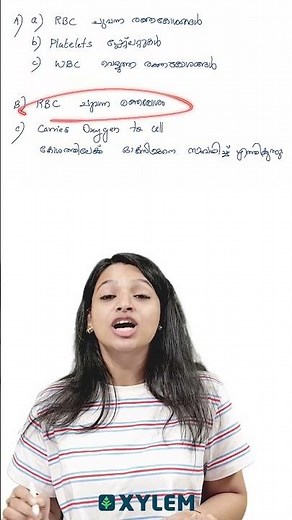 A) a) RBC ചുവന്ന രക്തകോശങ്ങൾ
b) Platelets പ്ലേറ്റ്ലെറ്റുകൾ
c) WBC വെളുത്ത രക്തകോശങ്ങൾ
B) RBC ചുവന്ന രക്തകോശം
c) Carries Oxygen to cell
കോശത്തിലേക്ക് ഓക്സിജനെ എത്തിക്കുന്നു
XYLEM